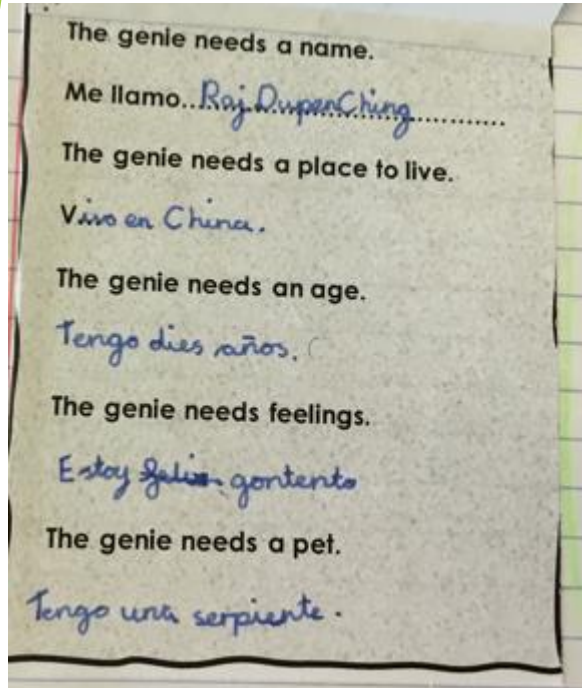 The genie needs a name.
Me llamo...Raj.DupenChing.............
The genie needs a place to live.
Vivo en China.
The genie needs an age.
Tengo dies años.
The genie needs feelings.
Estoy felix gontento
The genie needs a pet.
Tengo una serpiente.